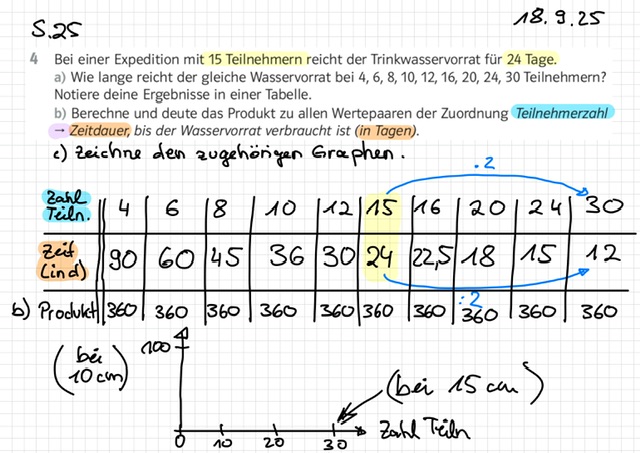 S.25
18.9.25
4 Bei einer Expedition mit 15 Teilnehmern reicht der Trinkwasservorrat für 24 Tage.
a) Wie lange reicht der gleiche Wasservorrat bei 4, 6, 8, 10, 12, 16, 20, 24, 30 Teilnehmern?
Notiere deine Ergebnisse in einer Tabelle.
b) Berechne und deute das Produkt zu allen Wertepaaren der Zuordnung Teilnehmerzahl
→ Zeitdauer, bis der Wasservorrat verbraucht ist (in Tagen).
c) Zeichne den zugehörigen Graphen.
·2
Zahl Teiln. 4 6 8 10 12 15 16 20 24 30
Zeit (in d) 90 60 45 36 30 24 22,5 18 15 12
:2
b) Produkt 360 360 360 360 360 360 360 360 360 360
(bei 10 cm)
100
(bei 15 cm)
0 10 20 30 Zahl Teiln